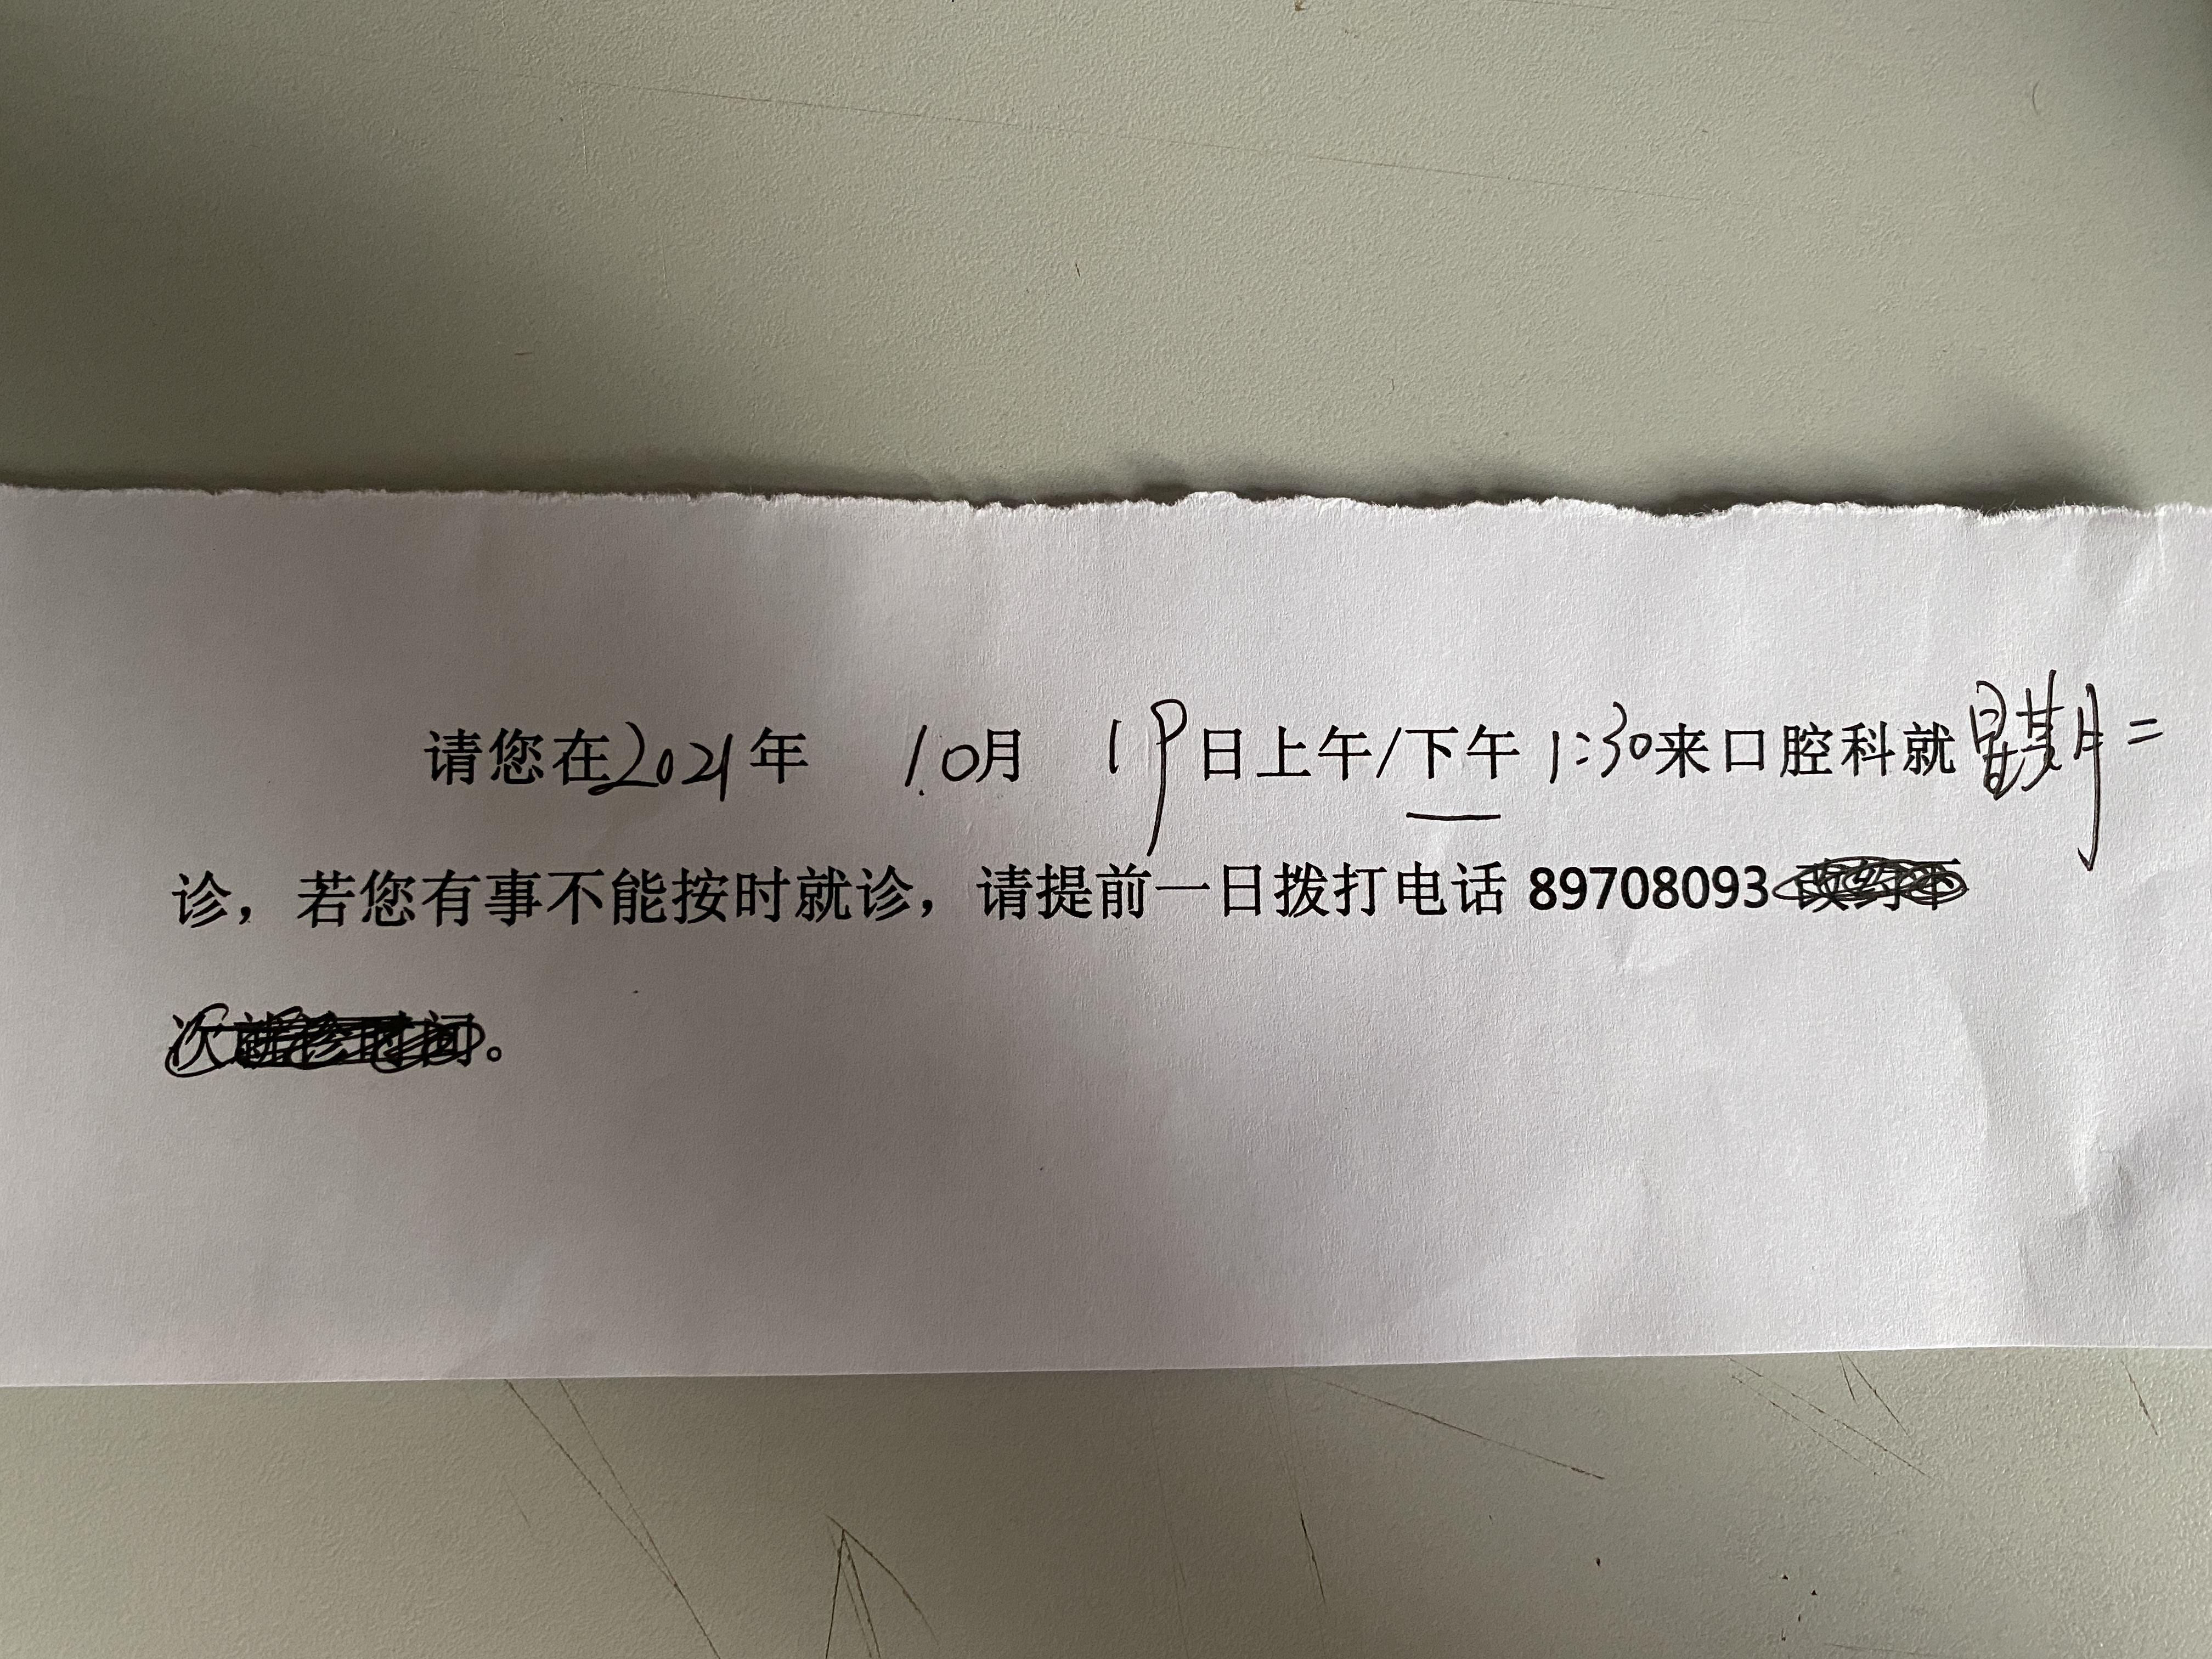 请您在2021年 10月 19日上午/下午 1:30来口腔科就 星期二
诊，若您有事不能按时就诊，请提前一日拨打电话 89708093
。